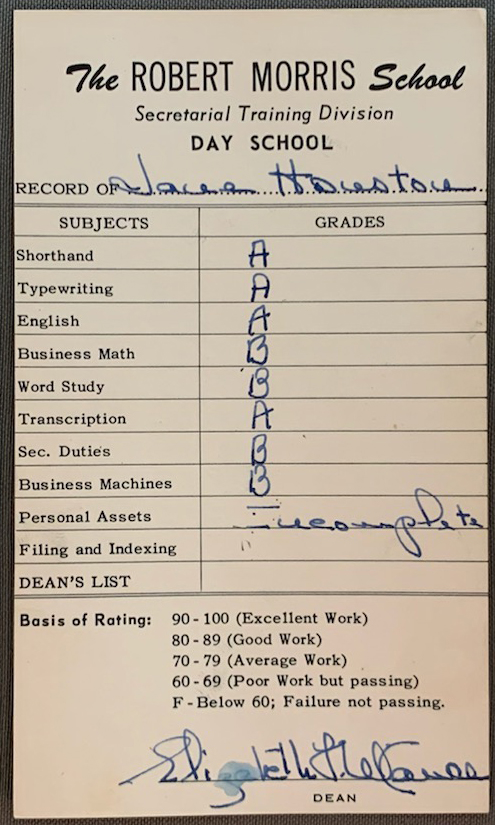 The ROBERT MORRIS School
Secretarial Training Division
DAY SCHOOL
RECORD OF Houston
SUBJECTS GRADES
Shorthand A
Typewriting A
English A
Business Math B
Word Study B
Transcription A
Sec. Duties B
Business Machines B
Personal Assets Incomplete
Filing and Indexing
DEAN'S LIST
Basis of Rating: 90 - 100 (Excellent Work)
80 - 89 (Good Work)
70 - 79 (Average Work)
60 - 69 (Poor Work but passing)
F - Below 60; Failure not passing.
Elizabeth
DEAN